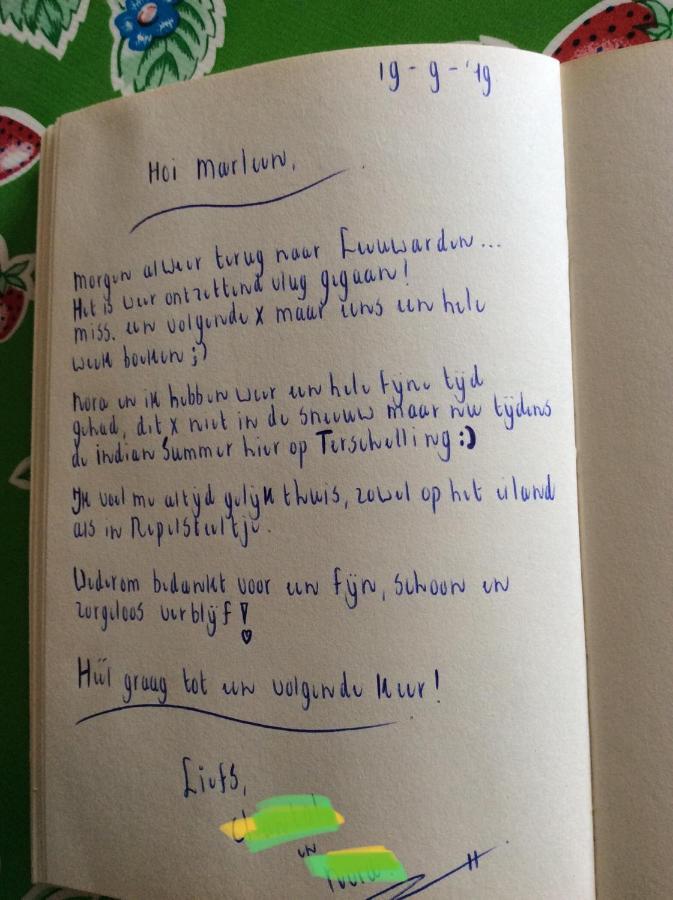 19-9-'19
Hoi Marleen,
morgen alweer terug naar Leeuwarden...
Het is weer ontzettend vlug gegaan!
miss. een volgende x maar eens een hele
week boeken ;)
Nora en ik hebben weer een hele fijne tijd
gehad, dit x niet in de sneeuw maar nu tijdens
de indian Summer hier op Terschelling :)
Ik voel me altijd gelijk thuis, zowel op het eiland
als in Repelsteeltje.
Wederom bedankt voor een fijn, schoon en
zorgeloos verblijf!
Héél graag tot een volgende keer!
Liefs,
en